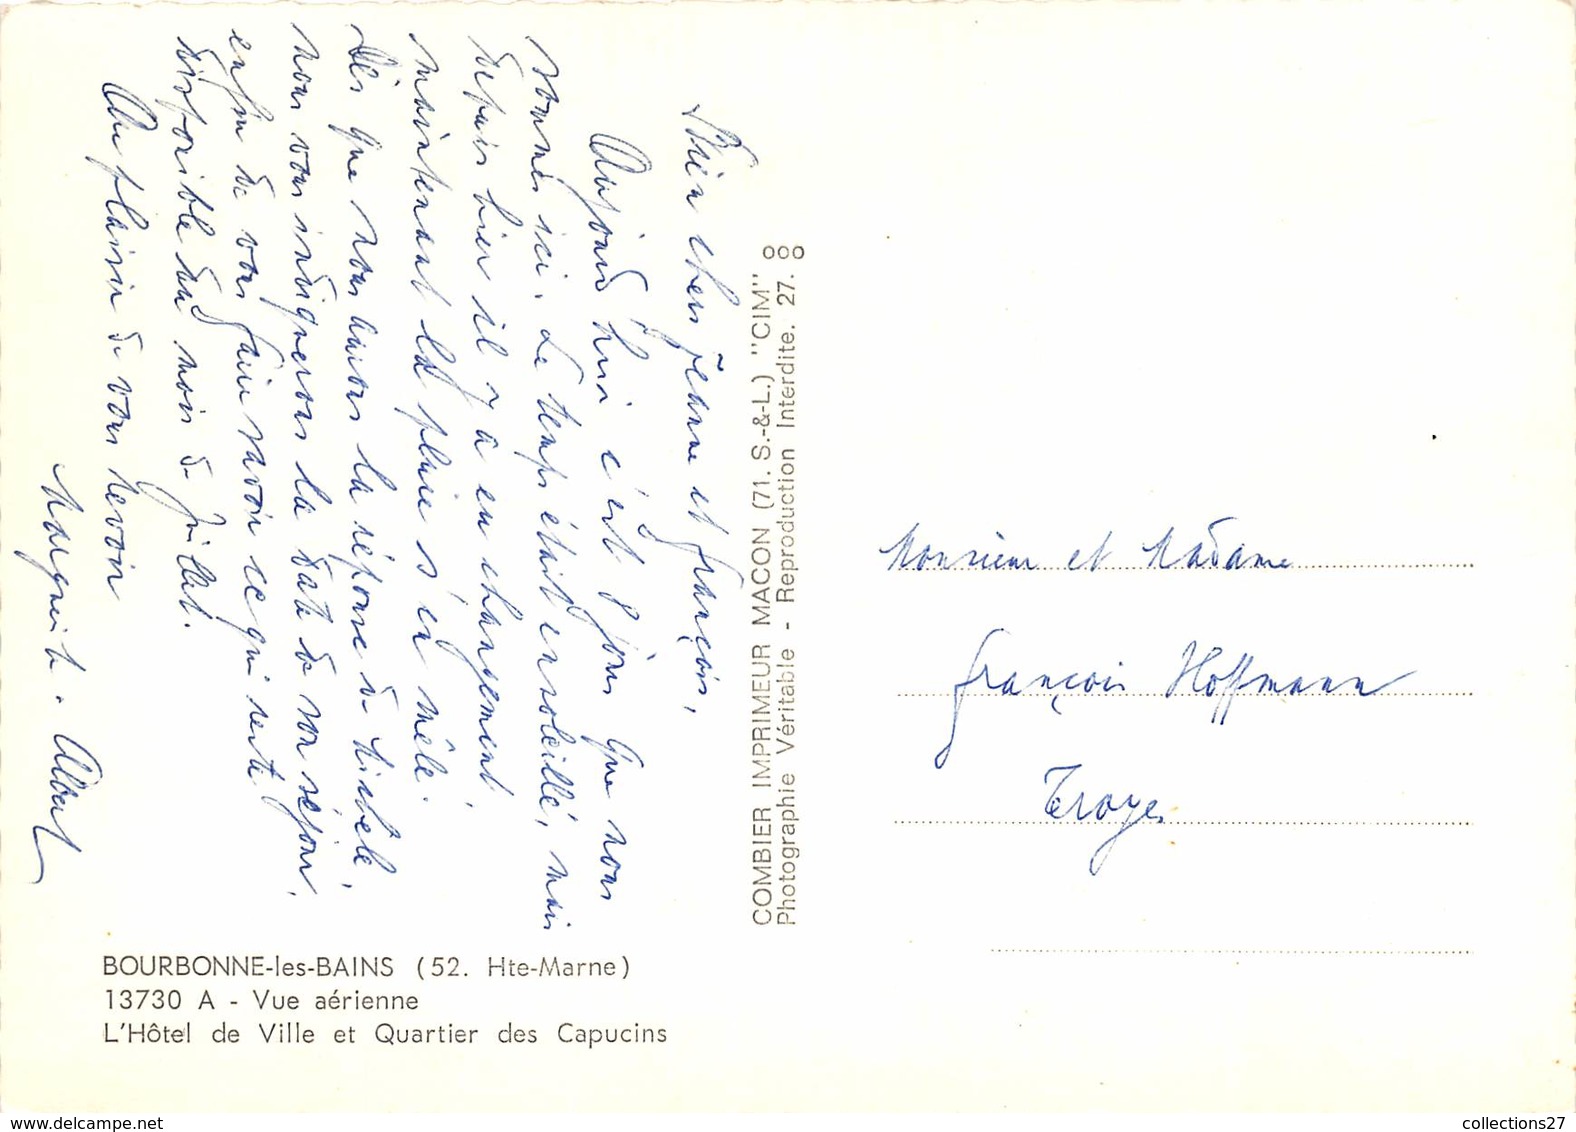 Bien chers Jeanne et François,
Aujourd'hui c'est 8 jours que nous
sommes ici. Le temps était ensoleillé, mais
depuis hier il y a eu changement,
maintenant la pluie s'en mêle.
Dès que nous aurons la réponse de
nous vous indiquerons la date de son séjour,
enfin de vous faire savoir ce qui reste
disponible du mois de juillet.
Au plaisir de vous revoir
Marguerite. Albert
COMBIER IMPRIMEUR MACON (71. S.-&-L.) "CIM"
Photographie Véritable - Reproduction Interdite. 27.
Monsieur et Madame
François Hoffmann
Troyes
BOURBONNE-les-BAINS (52. Hte-Marne)
13730 A - Vue aérienne
L'Hôtel de Ville et Quartier des Capucins
collections27